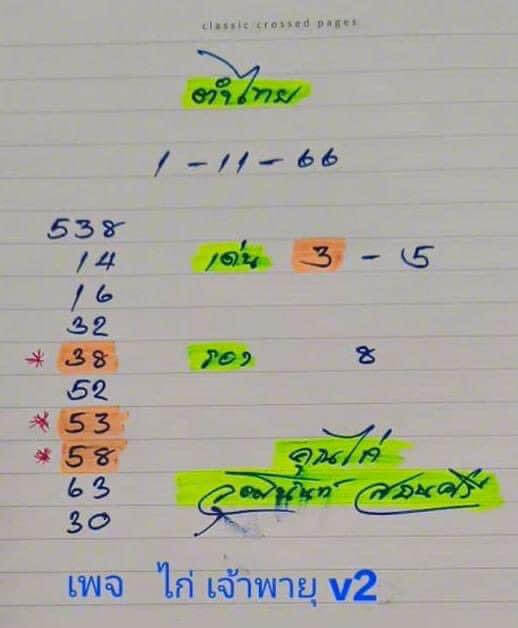 classic crossed pages
1-11-66
538
14
เด่น 3 - 5
16
32
* 38 รอง 8
52
* 53
* 58
คุณไก่
63
30
เพจ ไก่ เจ้าพายุ v2